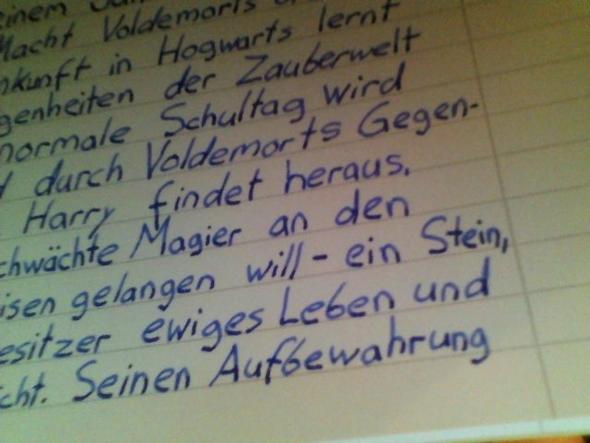 einem
Macht Voldemorts
nkunft in Hogwarts lernt
genheiten der Zauberwelt
normale Schultag wird
durch Voldemorts Gegen-
Harry findet heraus,
chwächte Magier an den
isen gelangen will - ein Stein,
esitzer ewiges Leben und
cht. Seinen Aufbewahrung